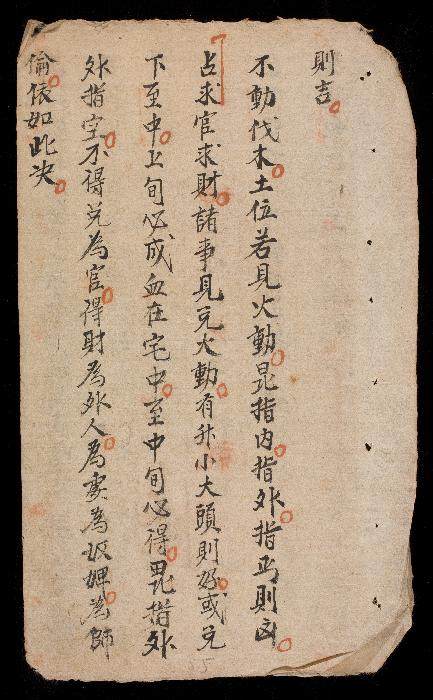 則吉
不動伐木土位若見火動昆指内指外指丙則凶
占求官求財諸事見兑火動有升小大頭則好或兑
下至中上旬必成血在宅中至中旬心得毘指外
外指空不得兑為官得財為外人為妻為奴婢為師
倫依如此决